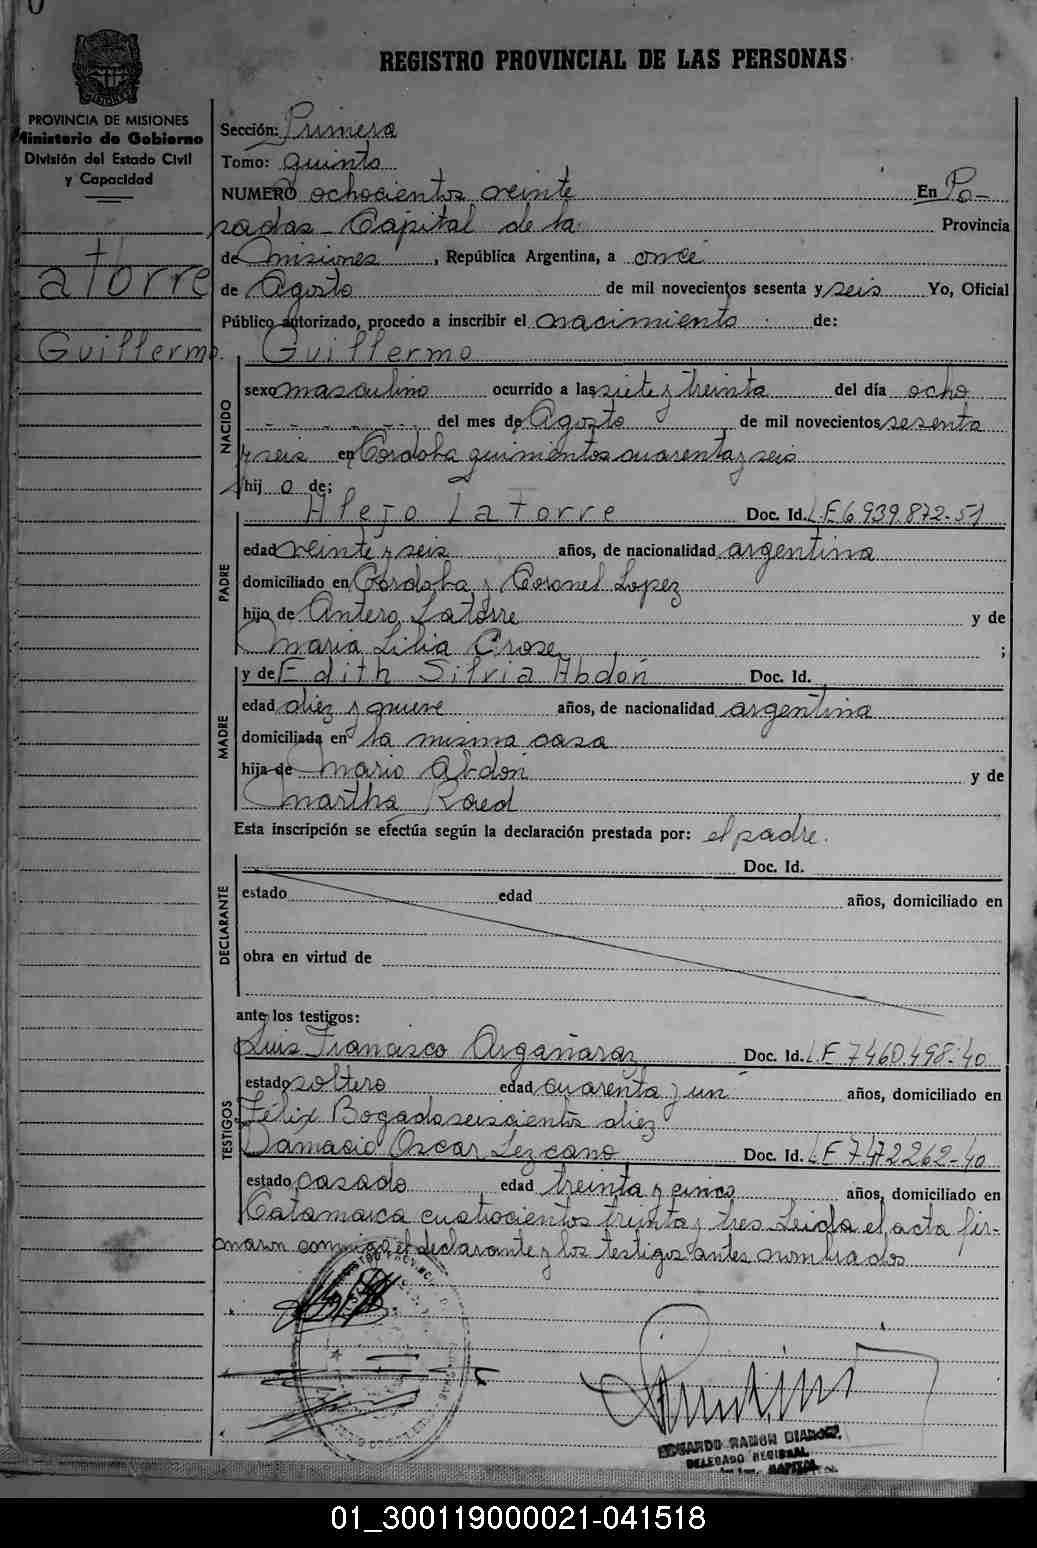 REGISTRO PROVINCIAL DE LAS PERSONAS
PROVINCIA DE MISIONES
Ministerio de Gobierno
División del Estado Civil
y Capacidad
Latorre
Guillermo
Sección: Primera
Tomo: quinto
NUMERO ochocientos veinte En Po-
sadas - Capital de la Provincia
de Misiones, República Argentina, a once
de Agosto de mil novecientos sesenta y seis Yo, Oficial
Público autorizado, procedo a inscribir el nacimiento de:
Guillermo
NACIDO
sexo masculino ocurrido a las siete y treinta del día ocho
del mes de Agosto de mil novecientos sesenta
y seis en Córdoba quinientos cuarenta y seis
hij o de:
PADRE
Alejo Latorre Doc. Id. L.E 6.939.872-51
edad veinte y seis años, de nacionalidad argentina
domiciliado en Córdoba y Coronel Lopez
hijo de Antero Latorre y de
Maria Lilia Crose ;
MADRE
y de Edith Silvia Abdón Doc. Id.
edad diez y nueve años, de nacionalidad argentina
domiciliada en la misma casa
hija de Mario Abdón y de
Martha Raed
Esta inscripción se efectúa según la declaración prestada por: el padre.
DECLARANTE
Doc. Id.
estado edad años, domiciliado en
obra en virtud de
ante los testigos:
TESTIGOS
Luis Francisco Argañaraz Doc. Id. L.E 7.460.498-40
estado soltero edad cuarenta y un años, domiciliado en
Félix Bogado seiscientos diez
Damacio Oscar Lezcano Doc. Id. L.E 7.472.262-40
estado casado edad treinta y cinco años, domiciliado en
Catamarca cuatrocientos treinta y tres Leida el acta fir-
maron conmigo el declarante y los testigos antes nombrados
EDUARDO RAMON
DELEGADO REGIONAL
CAPITAL
01_300119000021-041518